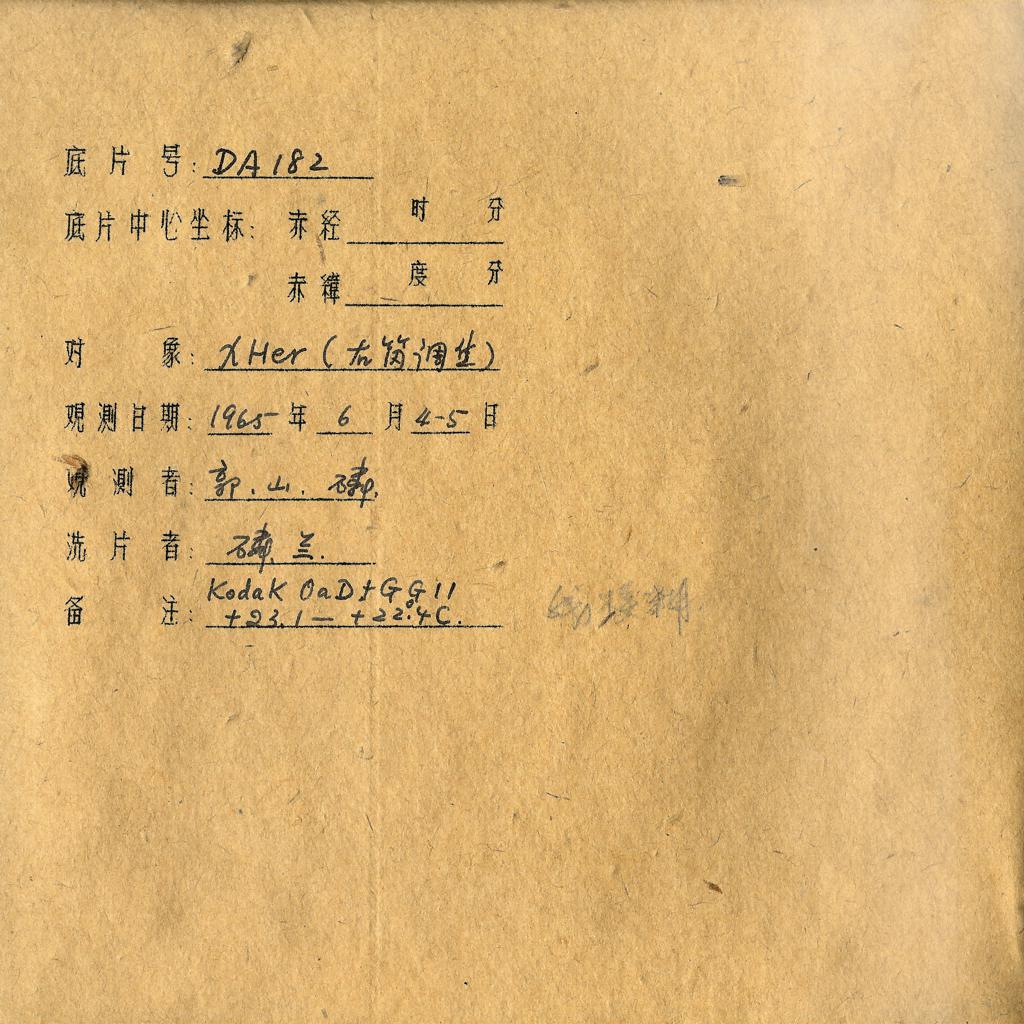 底片号: DA182
底片中心坐标: 赤经 时 分
赤緯 度 分
对象: χ Her (右筒调焦)
观测日期: 1965年 6月 4-5日
观测者: 郭. 山.
洗片者: 兰.
备注: Kodak OaD+GG11
+23.1 — +22.4°C.